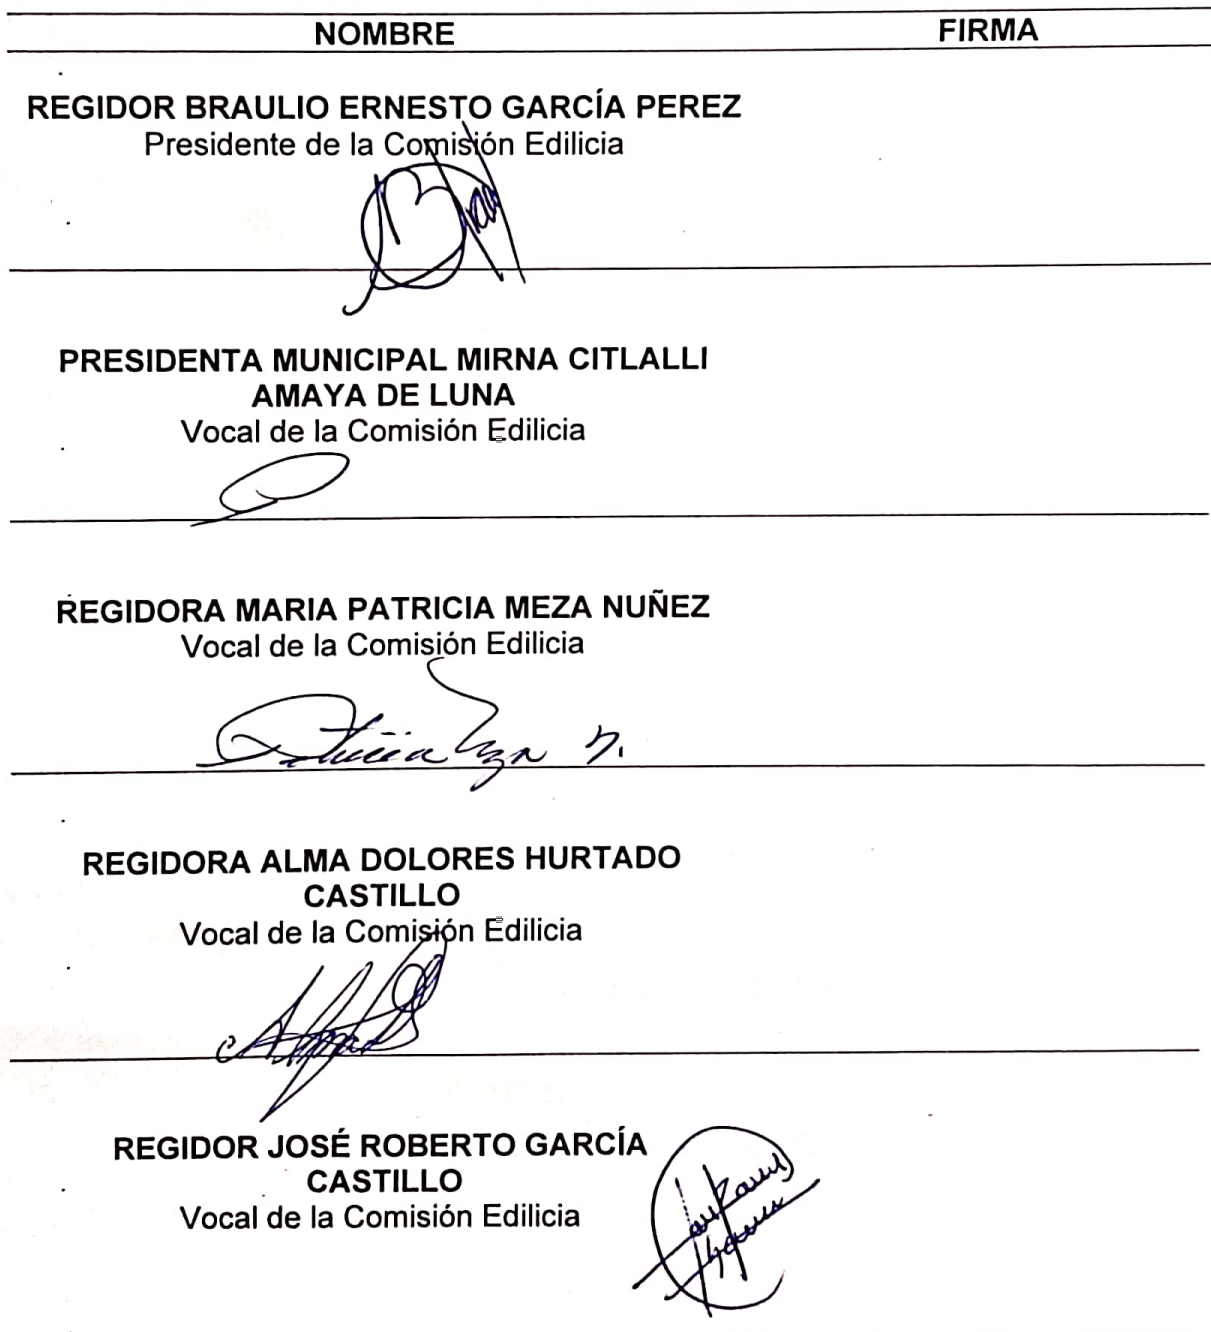 NOMBRE FIRMA
REGIDOR BRAULIO ERNESTO GARCÍA PEREZ
Presidente de la Comisión Edilicia
PRESIDENTA MUNICIPAL MIRNA CITLALLI
AMAYA DE LUNA
Vocal de la Comisión Edilicia
REGIDORA MARIA PATRICIA MEZA NUÑEZ
Vocal de la Comisión Edilicia
REGIDORA ALMA DOLORES HURTADO
CASTILLO
Vocal de la Comisión Edilicia
REGIDOR JOSÉ ROBERTO GARCÍA
CASTILLO
Vocal de la Comisión Edilicia